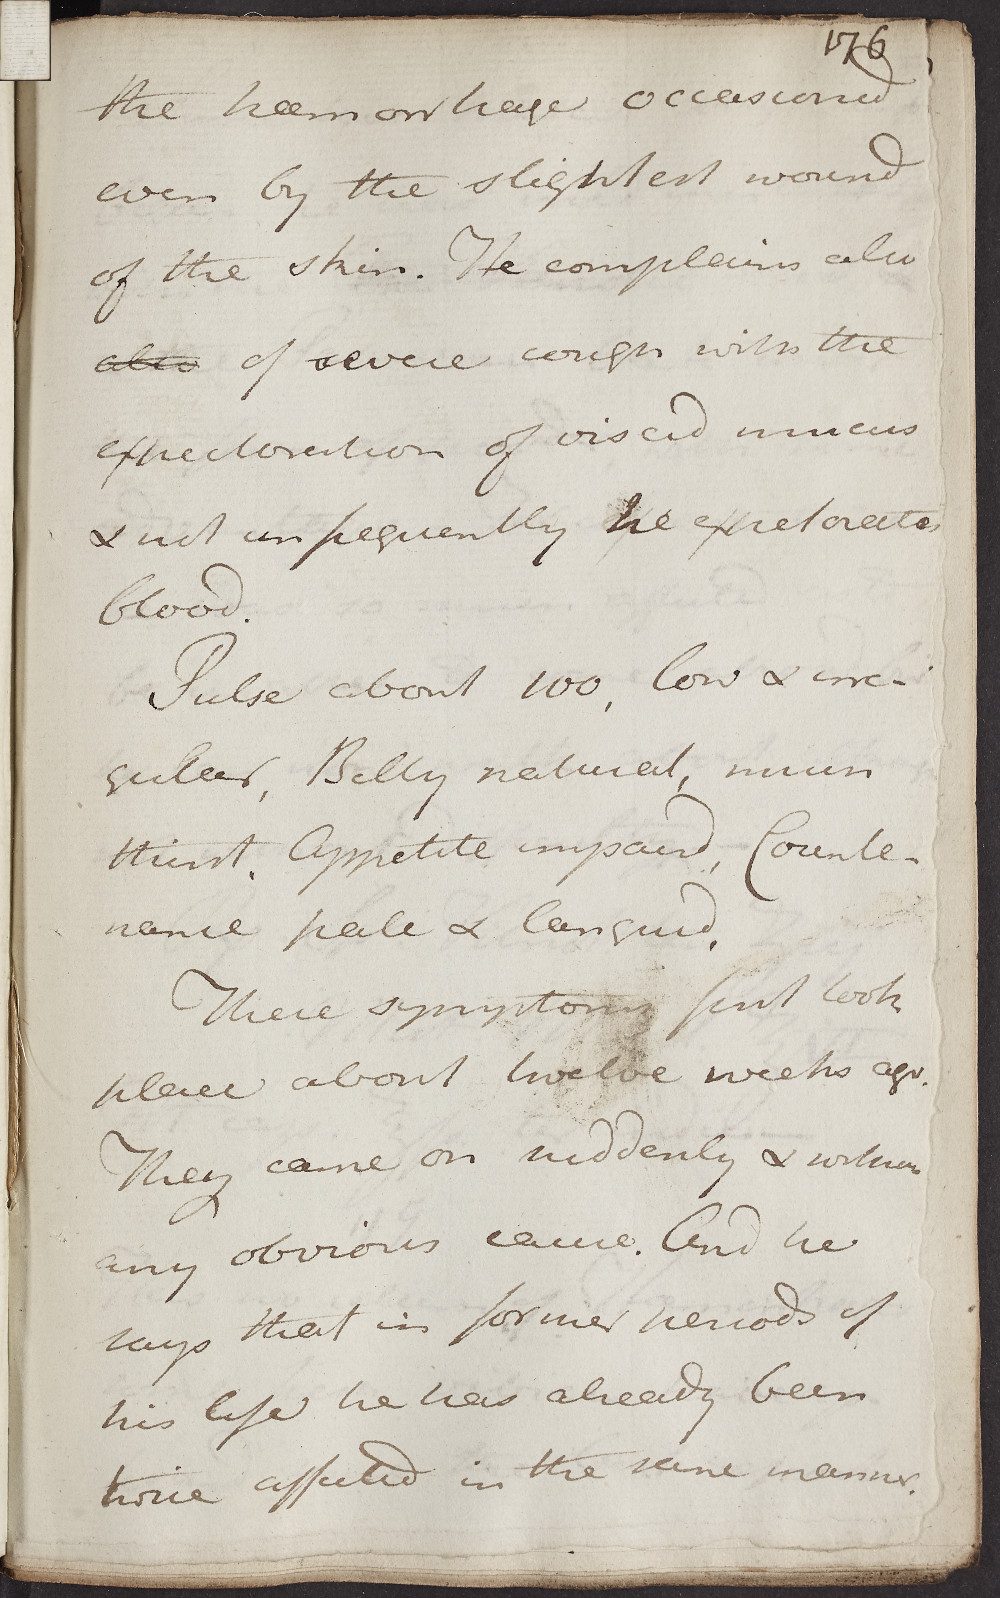 176
the hæmorrhage occasioned
even by the slightest wound
of the skin. He complains also
also of severe cough with the
expectoration of viscid mucus
& not unfrequently he expectorates
blood.
Pulse about 100, low & irre-
gular, Belly natural, much
thirst, Appetite impaired, Counte-
nance pale & languid.
These symptoms first took
place about twelve weeks ago.
They came on suddenly & without
any obvious cause. And he
says that in former periods of
his life he has already been
twice affected in the same manner.